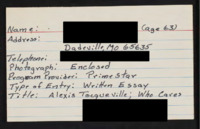 Name: (age 63)
Address:
Dadeville, MO 65635
Telephone:
Photograph: Enclosed
Program Provider: PrimeStar
Type of Entry: Written Essay
Title: Alexis Tocqueville; Who Cares